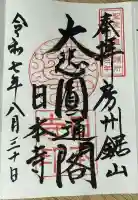 奉拝 房州鋸山
大悲圓通閣
日本寺
令和七年八月三十日